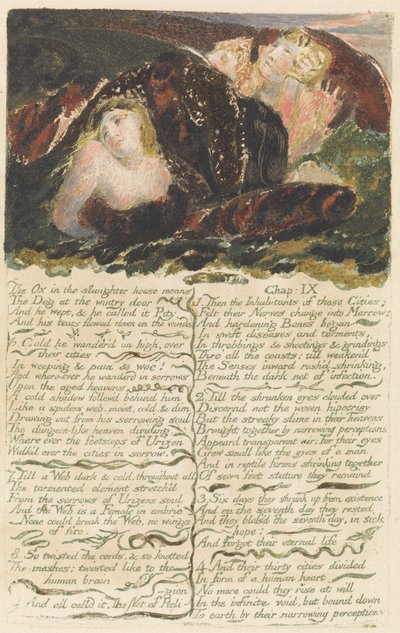 The Ox in the slaughter house moans
The Dog at the wintry door
And he wept, & he called it Pity
And his tears flowed down on the winds
6. Cold he wander'd on high, over
their cities
In weeping & pain & woe!
And where-ever he wanderd in sorrows
Upon the aged heavens
A cold shadow follow'd behind him
Like a spiders web, moist, cold, & dim
Drawing out from his sorrowing soul
The dungeon-like heaven dividing
Where ever the footsteps of Urizen
Walk'd over the cities in sorrow.
7. Till a Web dark & cold, throughout all
The tormented element stretch'd
From the sorrows of Urizens soul
And the Web is a Female in embrio
None could break the Web, no wings
of fire
8. So twisted the cords, & so knotted
The meshes: twisted like to the
human brain
-gion
9. And all calld it, The Net of Reli-
Chap: IX
1. Then the Inhabitants of those Cities:
Felt their Nerves change into Marrow
And hardening Bones began
In swift diseases and torments,
In throbbings & shootings & grindings
Thro' all the coasts; till weakend
The Senses inward rush'd shrinking,
Beneath the dark net of infection.
2. Till the shrunken eyes clouded over
Discernd not the woven hipocrisy
But the streaky slime in their heavens
Brought together by narrowing perceptions
Appeard transparent air; for their eyes
Grew small like the eyes of a man
And in reptile forms shrinking together
Of seven feet stature they remaind
3. Six days they shrunk up from existence
And on the seventh day they rested
And they bless'd the seventh day, in sick
hope:
And forgot their eternal life
4. And their thirty cities divided
In form of a human heart
No more could they rise at will
In the infinite void, but bound down
To earth by their narrowing perceptions